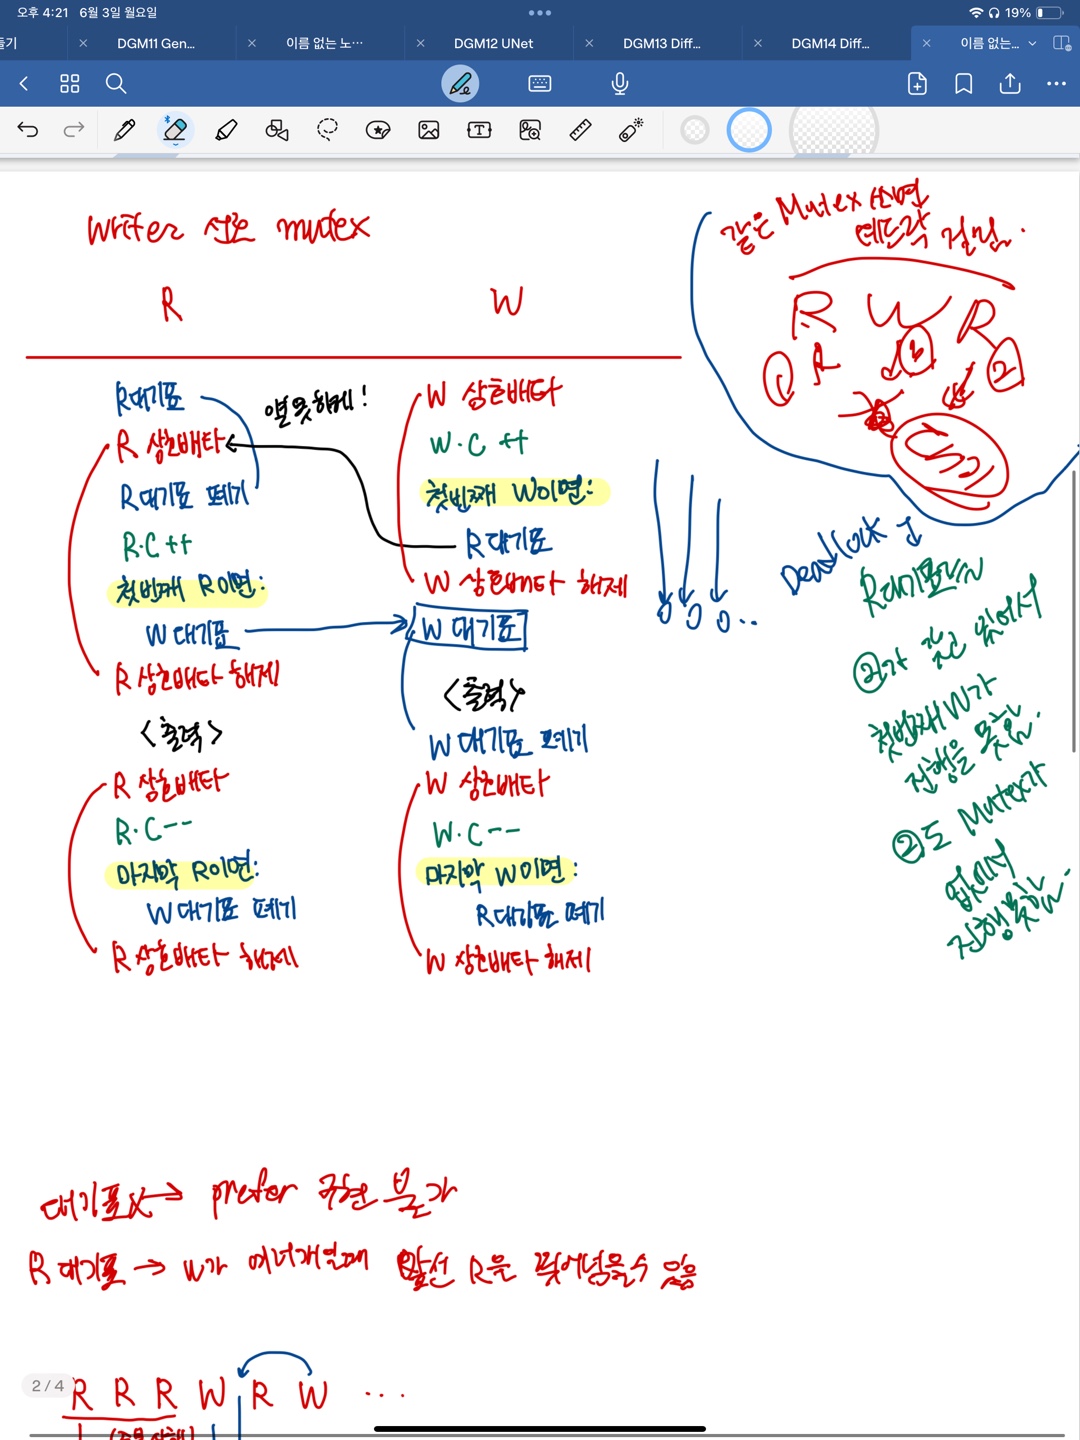 오후 4:21 6월 3일 월요일
19%
들기
DGM11 Gen...
이름 없는 노...
DGM12 UNet
DGM13 Diff...
DGM14 Diff...
이름 없는...
writer 선호 mutex
R
W
R대기표
R 상호배타
R대기표 폐기
R.C++
첫번째 R이면:
W 대기표
R 상호배타 해제
<출력>
R 상호배타
R.C--
마지막 R이면:
W대기표 폐기
R 상호배타 해제
열못하게!
W 상호배타
W.C++
첫번째 W이면:
R대기표
W 상호배타 해제
W 대기표
<출력>
W 대기표 폐기
W 상호배타
W.C--
마지막 W이면:
R대기표 폐기
W 상호배타 해제
같은 Mutex 쓰면
데드락 걸림.
R W R
① R ③ ②
Deadlock
R대기표는
②가 갖고 있어서
첫번째 W가
진행을 못함.
②도 Mutex가
없어서
진행못함.
대기표X → prefer 구현 불가
R대기표 → W가 여러개일때 앞선 R을 뛰어넘을수 있음
2/4
R R R W R W ...